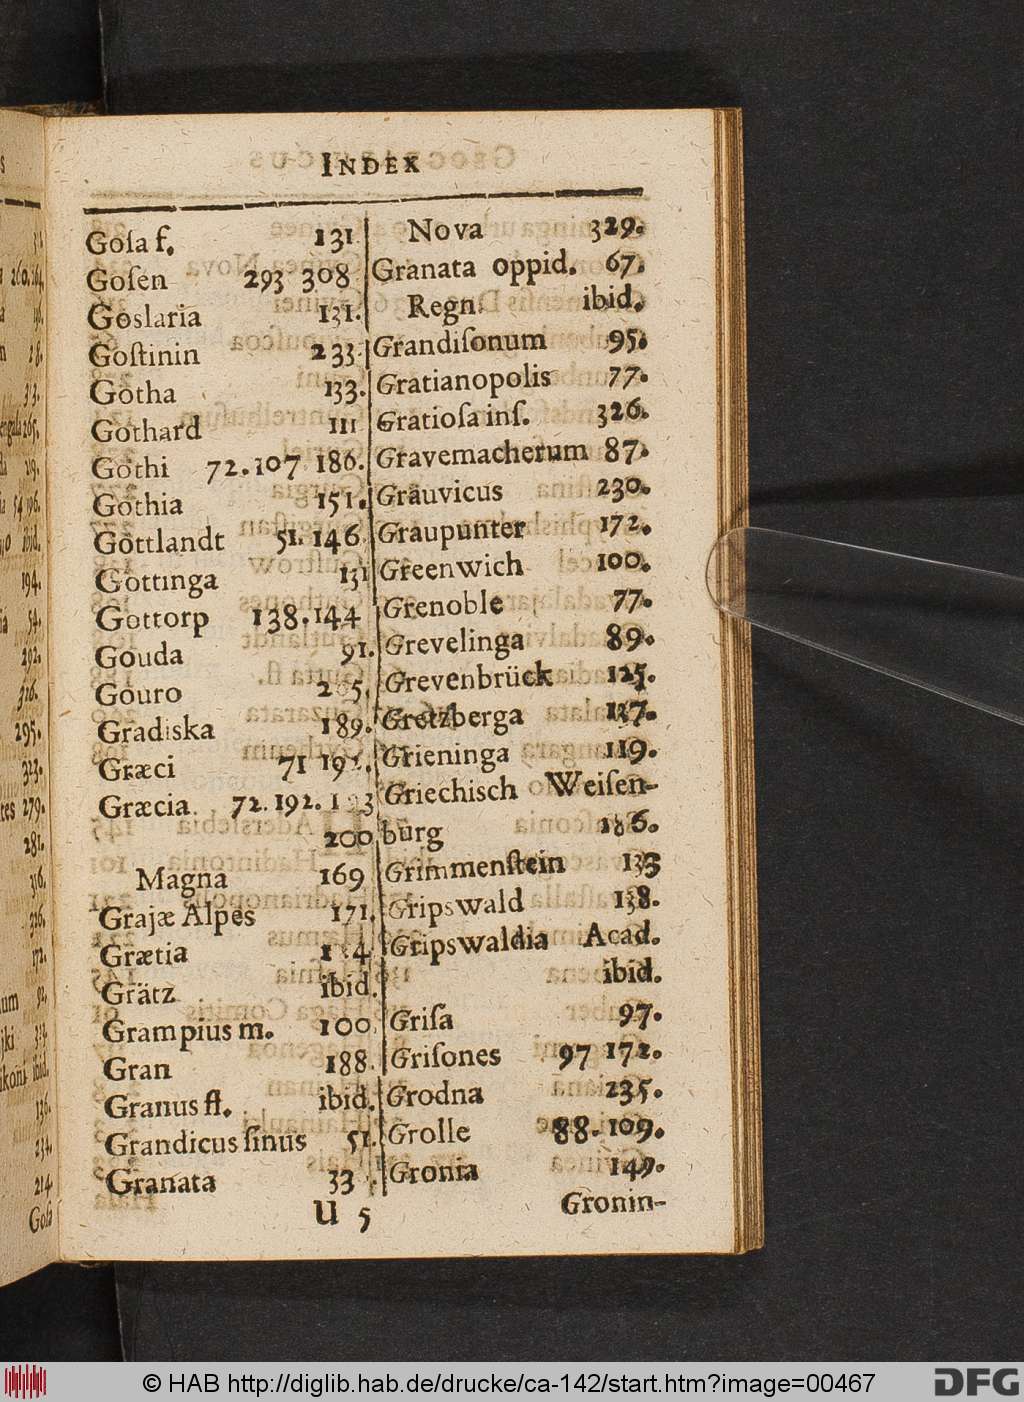 INDEX
Goſa f. 131
Goſen 293 308
Goslaria 131.
Goſtinin 233
Gotha 133.
Gothard 111
Gothi 72.107 186.
Gothia 151.
Gottlandt 51.146
Gottinga 131
Gottorp 138.144
Gouda 91.
Gouro
Gradiska 189.
Græci 71
Græcia 72.192.
200
Magna 169
Grajæ Alpes 171.
Grætia
Grätz ibid.
Grampius m. 100
Gran 188.
Granus fl. ibid.
Grandicus ſinus 51.
Granata 33
Nova 329.
Granata oppid. 67.
Regn. ibid.
Grandiſonum 95.
Gratianopolis 77.
Gratioſa inſ. 326.
Gravemacherum 87.
Grauvicus 230.
Graupunter 172.
Greenwich 100.
Grenoble 77.
Grevelinga 89.
Grevenbrück 125.
Gretzberga 137.
Grieninga 119.
Griechisch Weiſen-
burg 186.
Grimmenſtein 133
Gripswald 138.
Gripswaldia Acad.
ibid.
Griſa 97.
Griſones 97 172.
Grodna 235.
Grolle 88.109.
Gronia 149.
U 5
Gronin-
260.
265.
54 196.
ibid.
194.
54.
292.
316.
295.
323.
279.
281.
316.
172.
ibid.
136.
234.
214.
Goſa
© HAB http://diglib.hab.de/drucke/ca-142/start.htm?image=00467
DFG